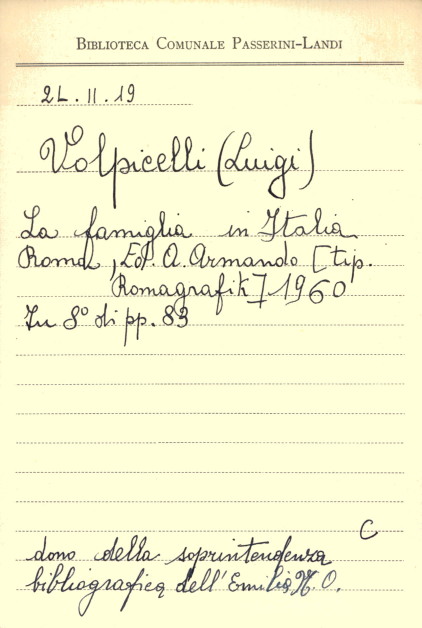 BIBLIOTECA COMUNALE PASSERINI-LANDI
2L.II.19
Volpicelli (Luigi)
La famiglia in Italia
Roma, Ed. A. Armando [tip.
Romagrafik] 1960
In 8° di pp. 83
C
dono della soprintendenza
bibliografica dell'Emilia N.O.